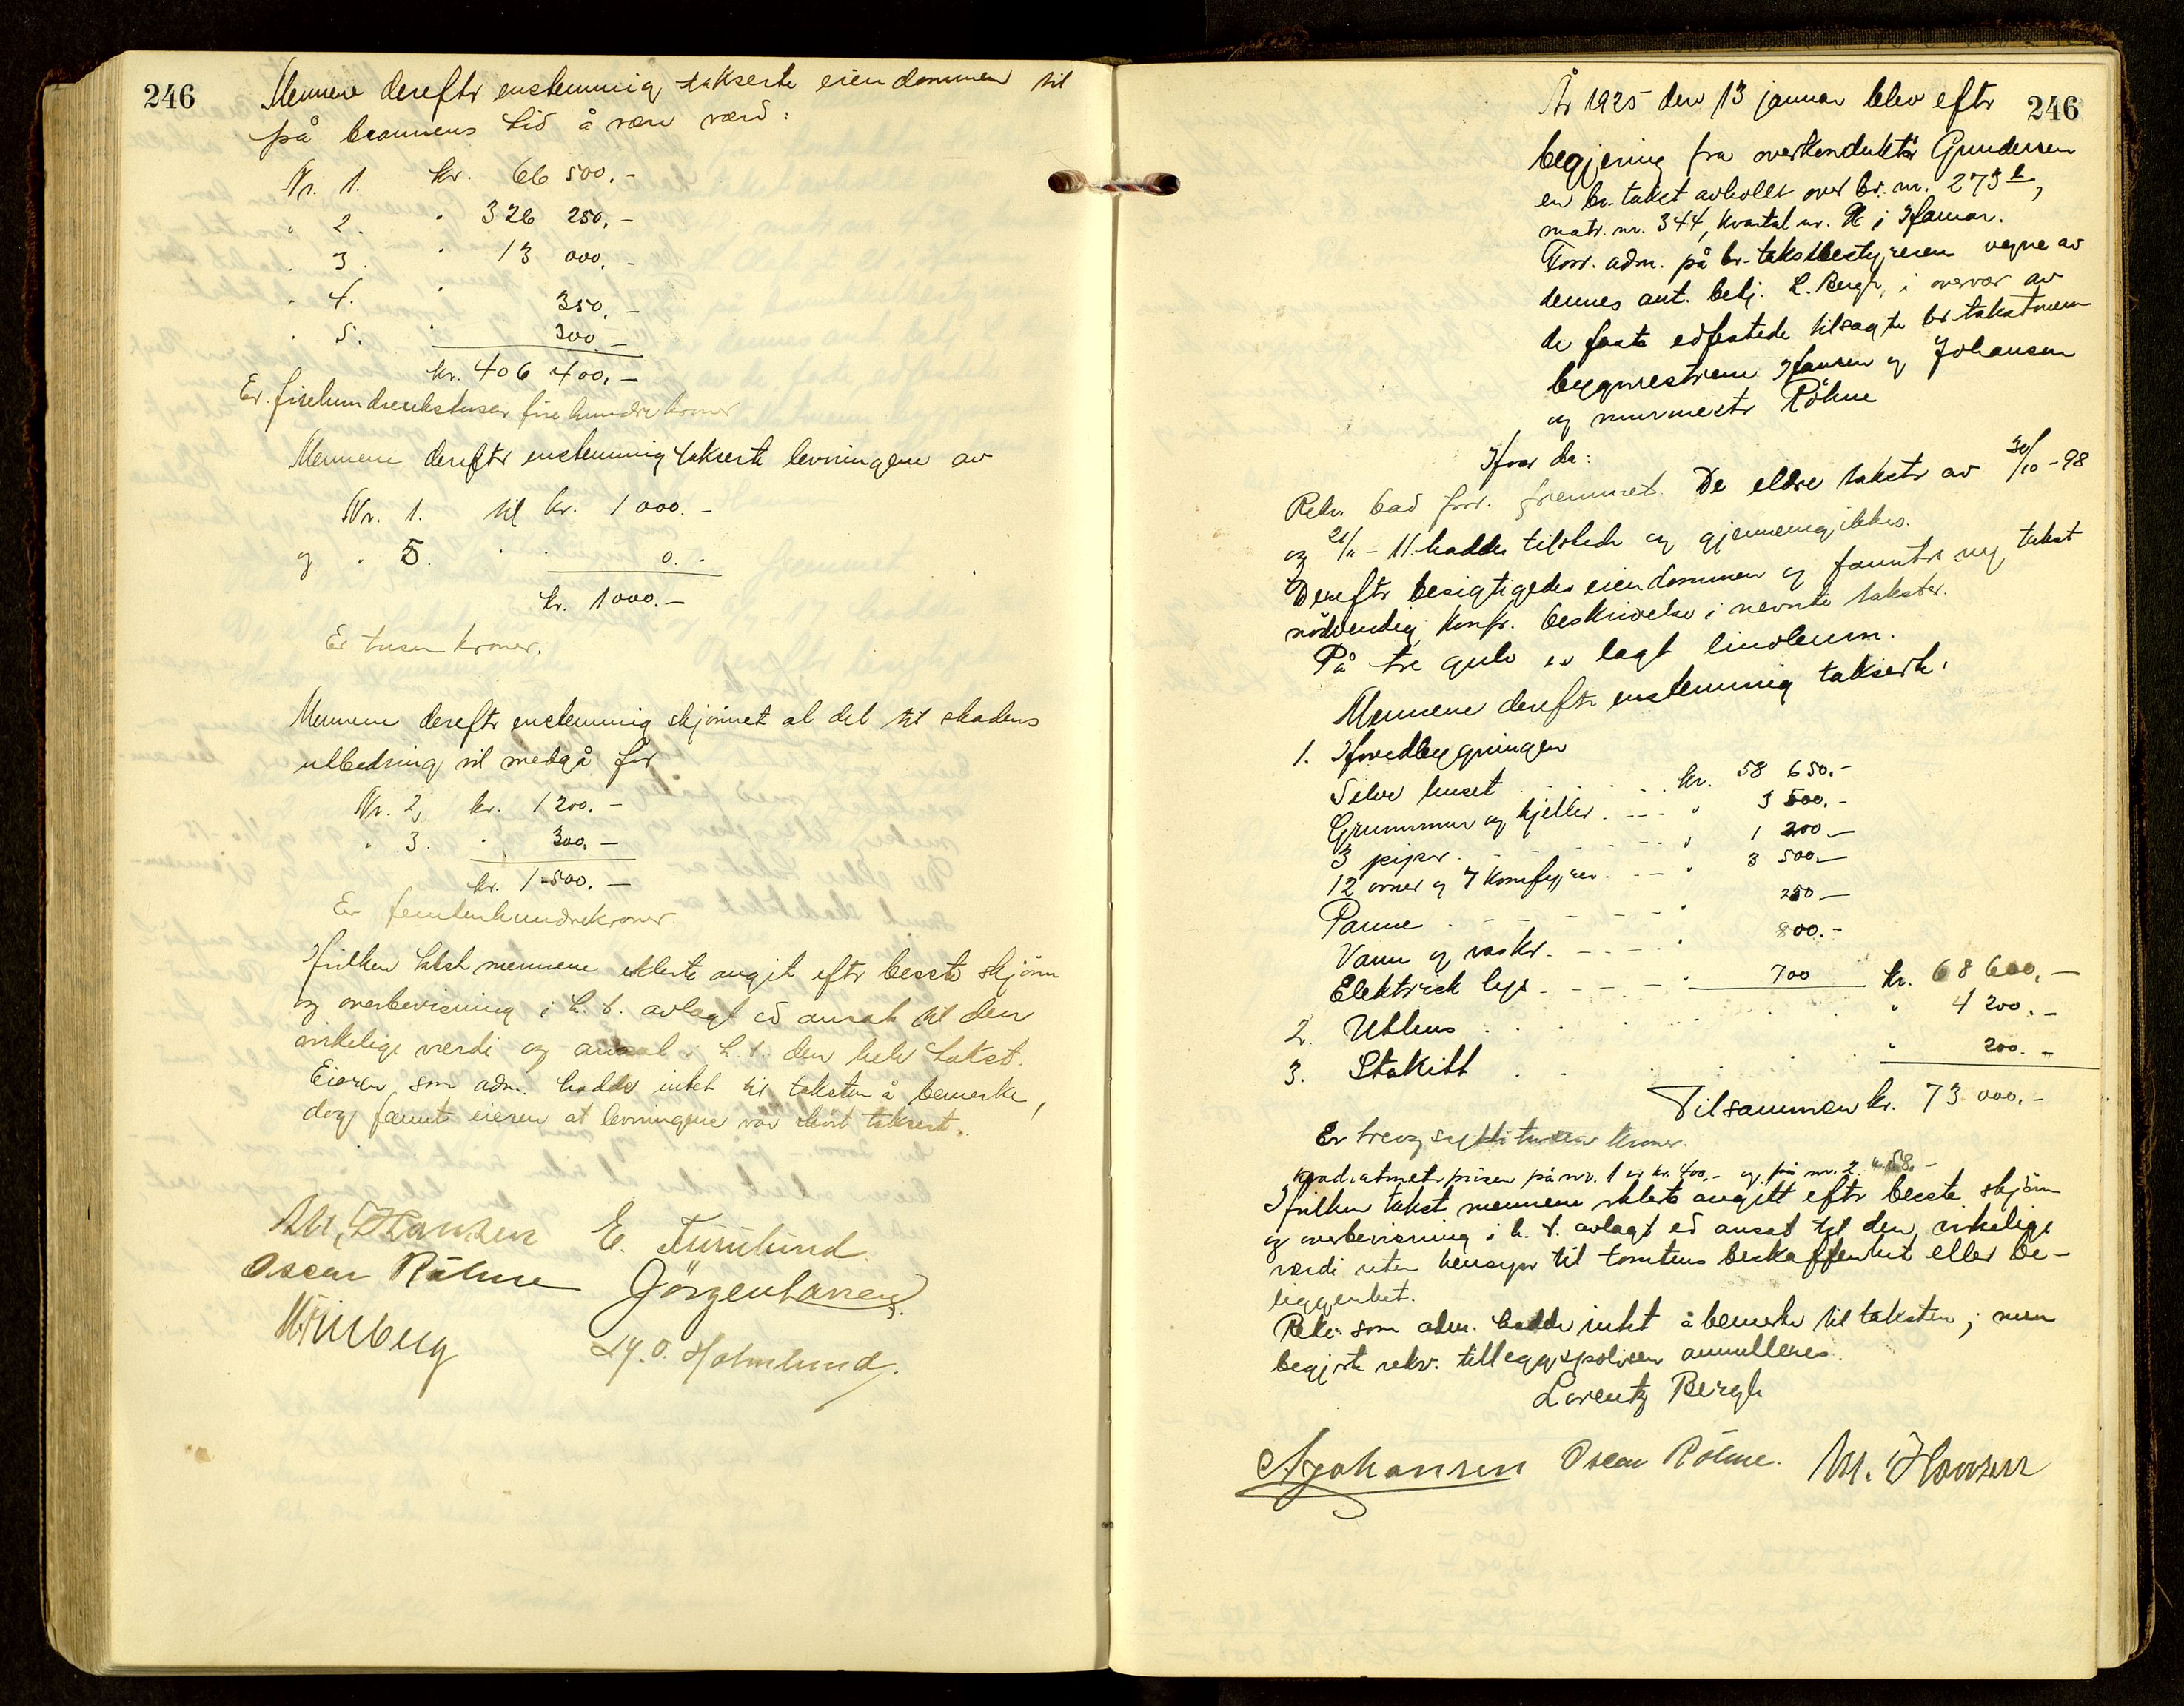 246
Mennene derefter enstemmig takserte eiendommen til
på brannens tid å være værd:
Nr. 1. kr. 66 500.-
" 2. " 326 250.-
" 3. " 13 000.-
" 4. " 350.-
" 5. " 300.-
kr. 406 400.-
Er firehundreseks tusen fire hundre kroner
Mennene derefter enstemmig takserte levningene av
Nr. 1. til kr. 1 000.-
og " 5. " " 0.-
kr. 1000.-
Er tusen kroner.
Mennene derefter enstemmig skjønnet at det til skadens
utbedring vil medgå for
Nr. 2, kr. 1 200.-
" 3. " 300.-
kr. 1 500.-
Er femtenhundrekroner.
Hvilken takst mennene erklærte angit efter beste skjønn
og overbevisning i h. t. avlagt ed ansat til den
virkelige værdi og ansat i h. t. den hele takst.
Eieren som adm. hadde intet til taksten å bemerke,
dog fannt eieren at levningene var høit taksert.
M. Hansen E. Furulund
Oscar Röhne Jörgen Larsen
Ly. O. Holmlund.
246
År 1925 den 13 januar blev efter
begjering fra overkonduktör Gundersen
en br. takst avholdt over br. nr. 273 b,
matr. nr. 344, kvartal nr. 9 i Hamar.
Forr. adm. på br. takstbestyreren vegne av
dennes aut. betj. L. Bergh, i overvær av
de faste edfestede tilsagte br. takstmenn
byggmestrene Hansen og Johansen
og murmester Röhne
Hvor da:
Rekv. bad forr. fremmet. De eldre takster av 30/10-98
og 21/11-11 haddes tilstede og gjennemgikkes.
Derefter besigtigedes eiendommen og fanntes ny takst
nødvendig konfr. beskrivelse i nevnte takster.
På tre gulv er lagt linoleum.
Mennene derefter enstemmig takserte:
1. Hovedbygningen
Selve huset . . . kr. 58 650.-
Grunnmur og kjeller . - - " 3 500.-
3 piper . - - - " 1 200.-
12 ovner og 7 komfyrer . - - " 3 500.-
Panne . - - - " 250.-
Vann og vasker . - - " 800.-
Elektrisk lys - - - " 700 kr. 68 600.-
2. Uthus . . . . " 4 200.-
3. Stakitt . . . " 200.-
Tilsammen kr. 73 000.-
Er treogsytti tusen kroner.
Kvadratmeter prisen på nr. 1 er kr. 400.- og på nr. 2. kr. 58.-
Hvilken takst mennene erklærte angitt efter beste skjønn
og overbevisning i h. t. avlagt ed ansat til den virkelige
værdi uten hensyn til tomtens beskaffenhet eller be-
liggenhet.
Rekv. som adm. hadde intet å bemerke til taksten; men
begjerte rekv. tilleggspolisen annulleres.
Lorentz Bergh
A Johansen Oscar Röhne. M. Hansen